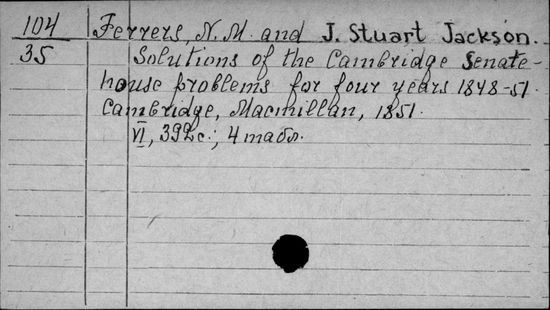 104 Ferrers, N. M. and J. Stuart Jackson.
35 Solutions of the Cambridge Senate-
house problems for four years 1848-51.
Cambridge, Macmillan, 1851.
VI, 392 с.; 4 табл.